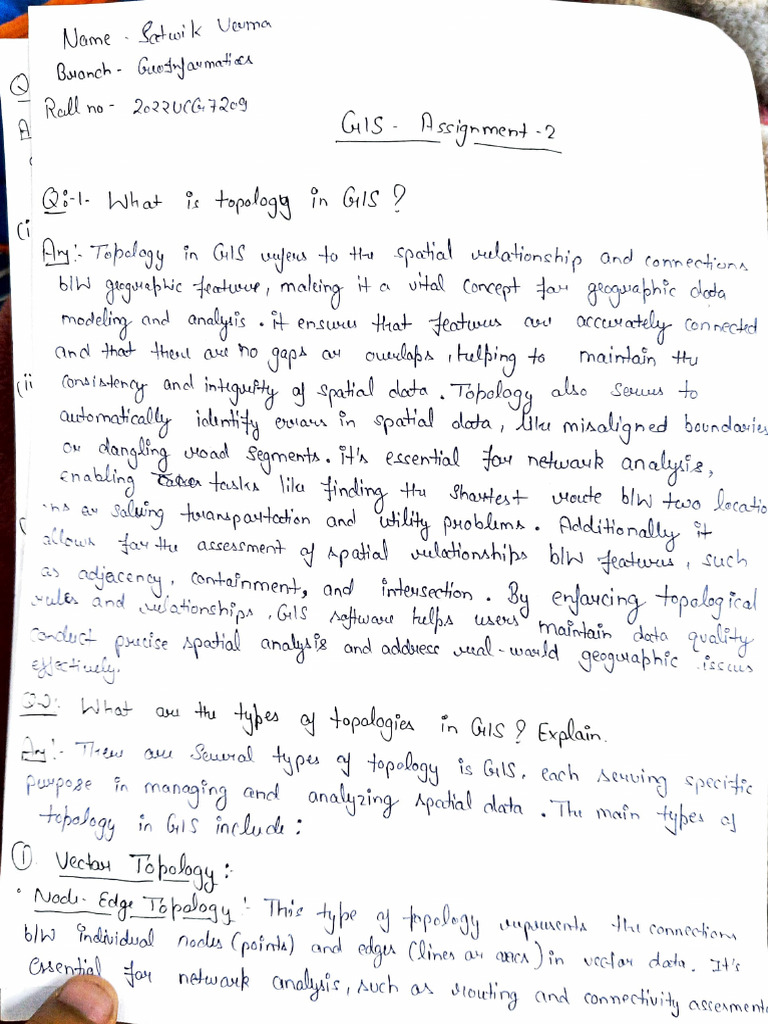 Name - Satwik Verma
Branch - GeoInformatics
Roll no - 2022UCG7209
GIS - Assignment - 2
Q:-1. What is topology in GIS ?
Ans:- Topology in GIS refers to the spatial relationship and connections
b/w geographic feature, making it a vital concept for geographic data
modeling and analysis. it ensures that features are accurately connected
and that there are no gaps or overlaps, helping to maintain the
consistency and integrity of spatial data. Topology also serves to
automatically identify errors in spatial data, like misaligned boundaries
or dangling road segments. it's essential for network analysis,
enabling tasks like finding the shortest route b/w two locatio
ns or solving transportation and utility problems. Additionally it
allows for the assessment of spatial relationships b/w features, such
as adjacency, containment, and intersection. By enforcing topological
rules and relationships, GIS software helps users maintain data quality
conduct precise spatial analysis and address real-world geographic issues
effectively.
Q-2: What are the types of topologies in GIS ? Explain.
Ans:- There are several types of topology is GIS, each serving specific
purpose in managing and analyzing spatial data. The main types of
topology in GIS include:
① Vector Topology:-
• Node-Edge Topology:- This type of topology represents the connections
b/w individual nodes (points) and edges (lines or arcs) in vector data. It's
essential for network analysis, such as routing and connectivity assesment
Q
A
(i
(ii